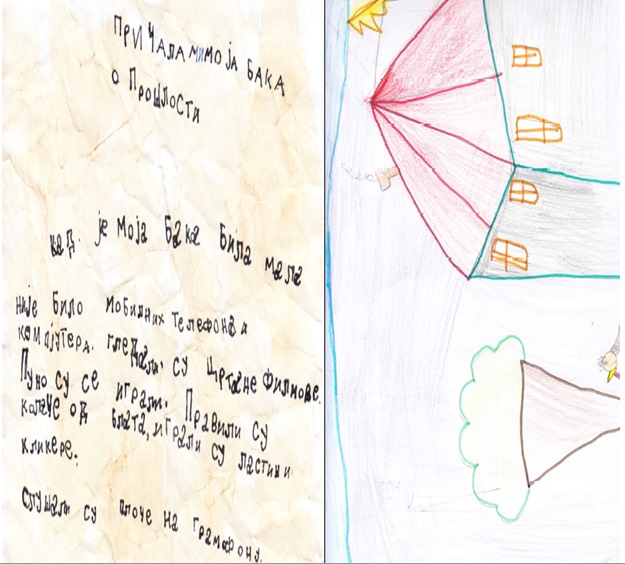 ПРИЧАЛА МИ МОЈА БАКА
О ПРОШЛОСТИ
кад је моја бака била мала
није било мобилних телефона и
компјутера. гледали су цртане филмове.
Пуно су се играли. Правили су
колаче од блата, играли су ластиш и
кликере.
слушали су плоче на грамофону.